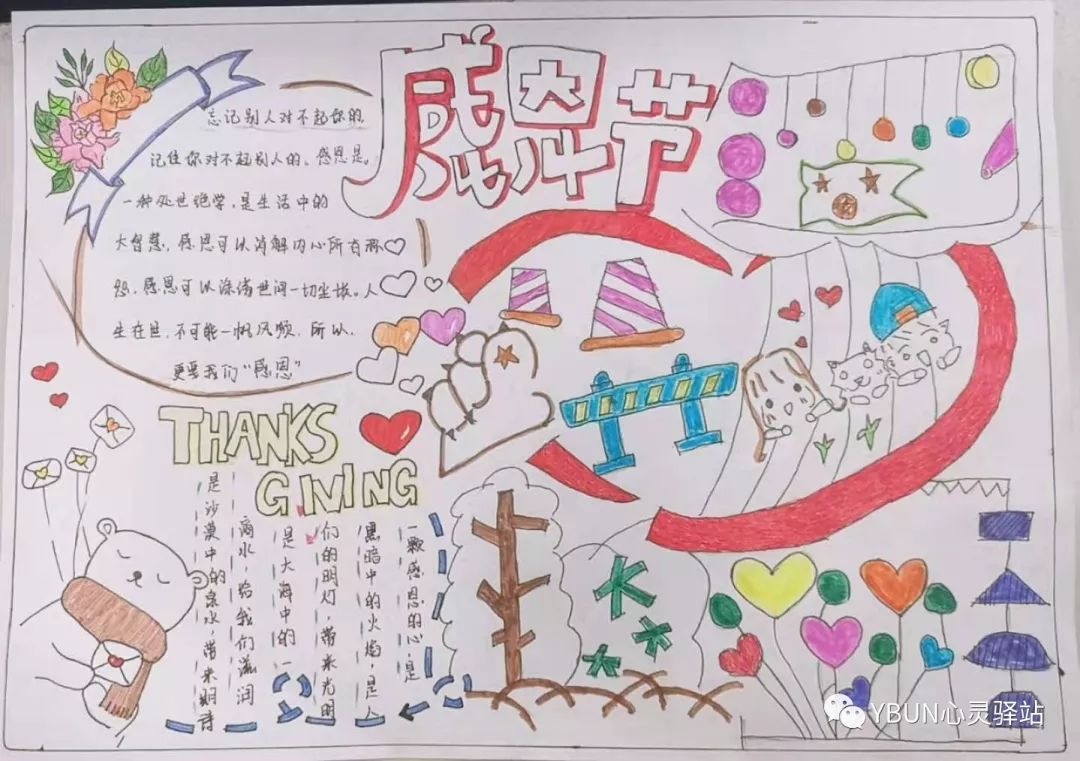 感恩节
忘记别人对不起你的,
记住你对不起别人的、感恩是。
一种处世哲学,是生活中的
大智慧,感恩可以消解内心所有积
怨,感恩可以涤荡世间一切尘埃。人
生在世,不可能一帆风顺,所以,
更要我们“感恩”
THANKS
GIVING
一颗感恩的心,是
黑暗中的火焰,是人
们的明灯,带来光明
是大海中的一
滴水,给我们滋润
是沙漠中的泉水,带来
YBUN心灵驿站